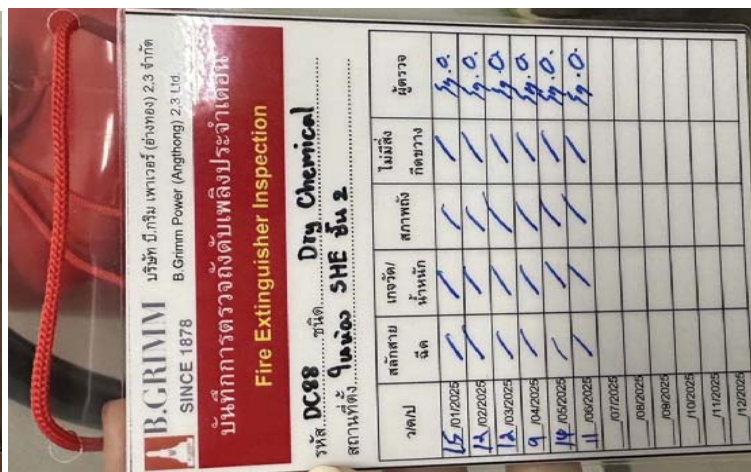 B.GRIMM
SINCE 1878
บริษัท บี.กริม เพาเวอร์ (อ่างทอง) 2,3 จำกัด
B.Grimm Power (Angthong) 2,3 Ltd.
บันทึกการตรวจถังดับเพลิงประจำเดือน
Fire Extinguisher Inspection
รหัส DC88 ชนิด Dry Chemical
สถานที่ตั้ง ในห้อง SHE ชั้น 2
ว/ด/ป สลักสาย ฉีด เกจวัด/ น้ำหนัก สภาพถัง ไม่มีสิ่ง กีดขวาง ผู้ตรวจ
15 /01/2025 / / / /
12 /02/2025 / / / /
12 /03/2025 / / / /
9 /04/2025 / / / /
14 /05/2025 / / / /
11 /06/2025 / / / /
/07/2025
/08/2025
/09/2025
/10/2025
/11/2025
/12/2025